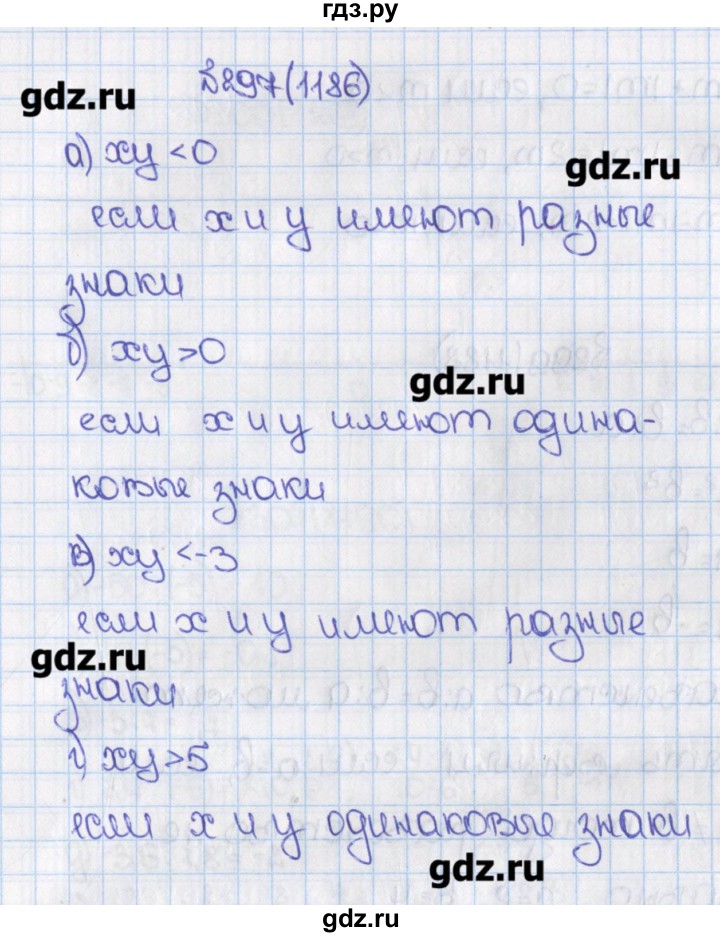 гдз.ру
№297(1186)
gdz.ru
а) xy < 0
gdz.ru
если x и y имеют разные
знаки
б) xy > 0
gdz.ru
если x и y имеют одина-
ковые знаки
в) xy < -3
если x и y имеют разные
gdz.ru
знаки
г) xy > 5
если x и y одинаковые знаки
gdz.ru
gdz.ru